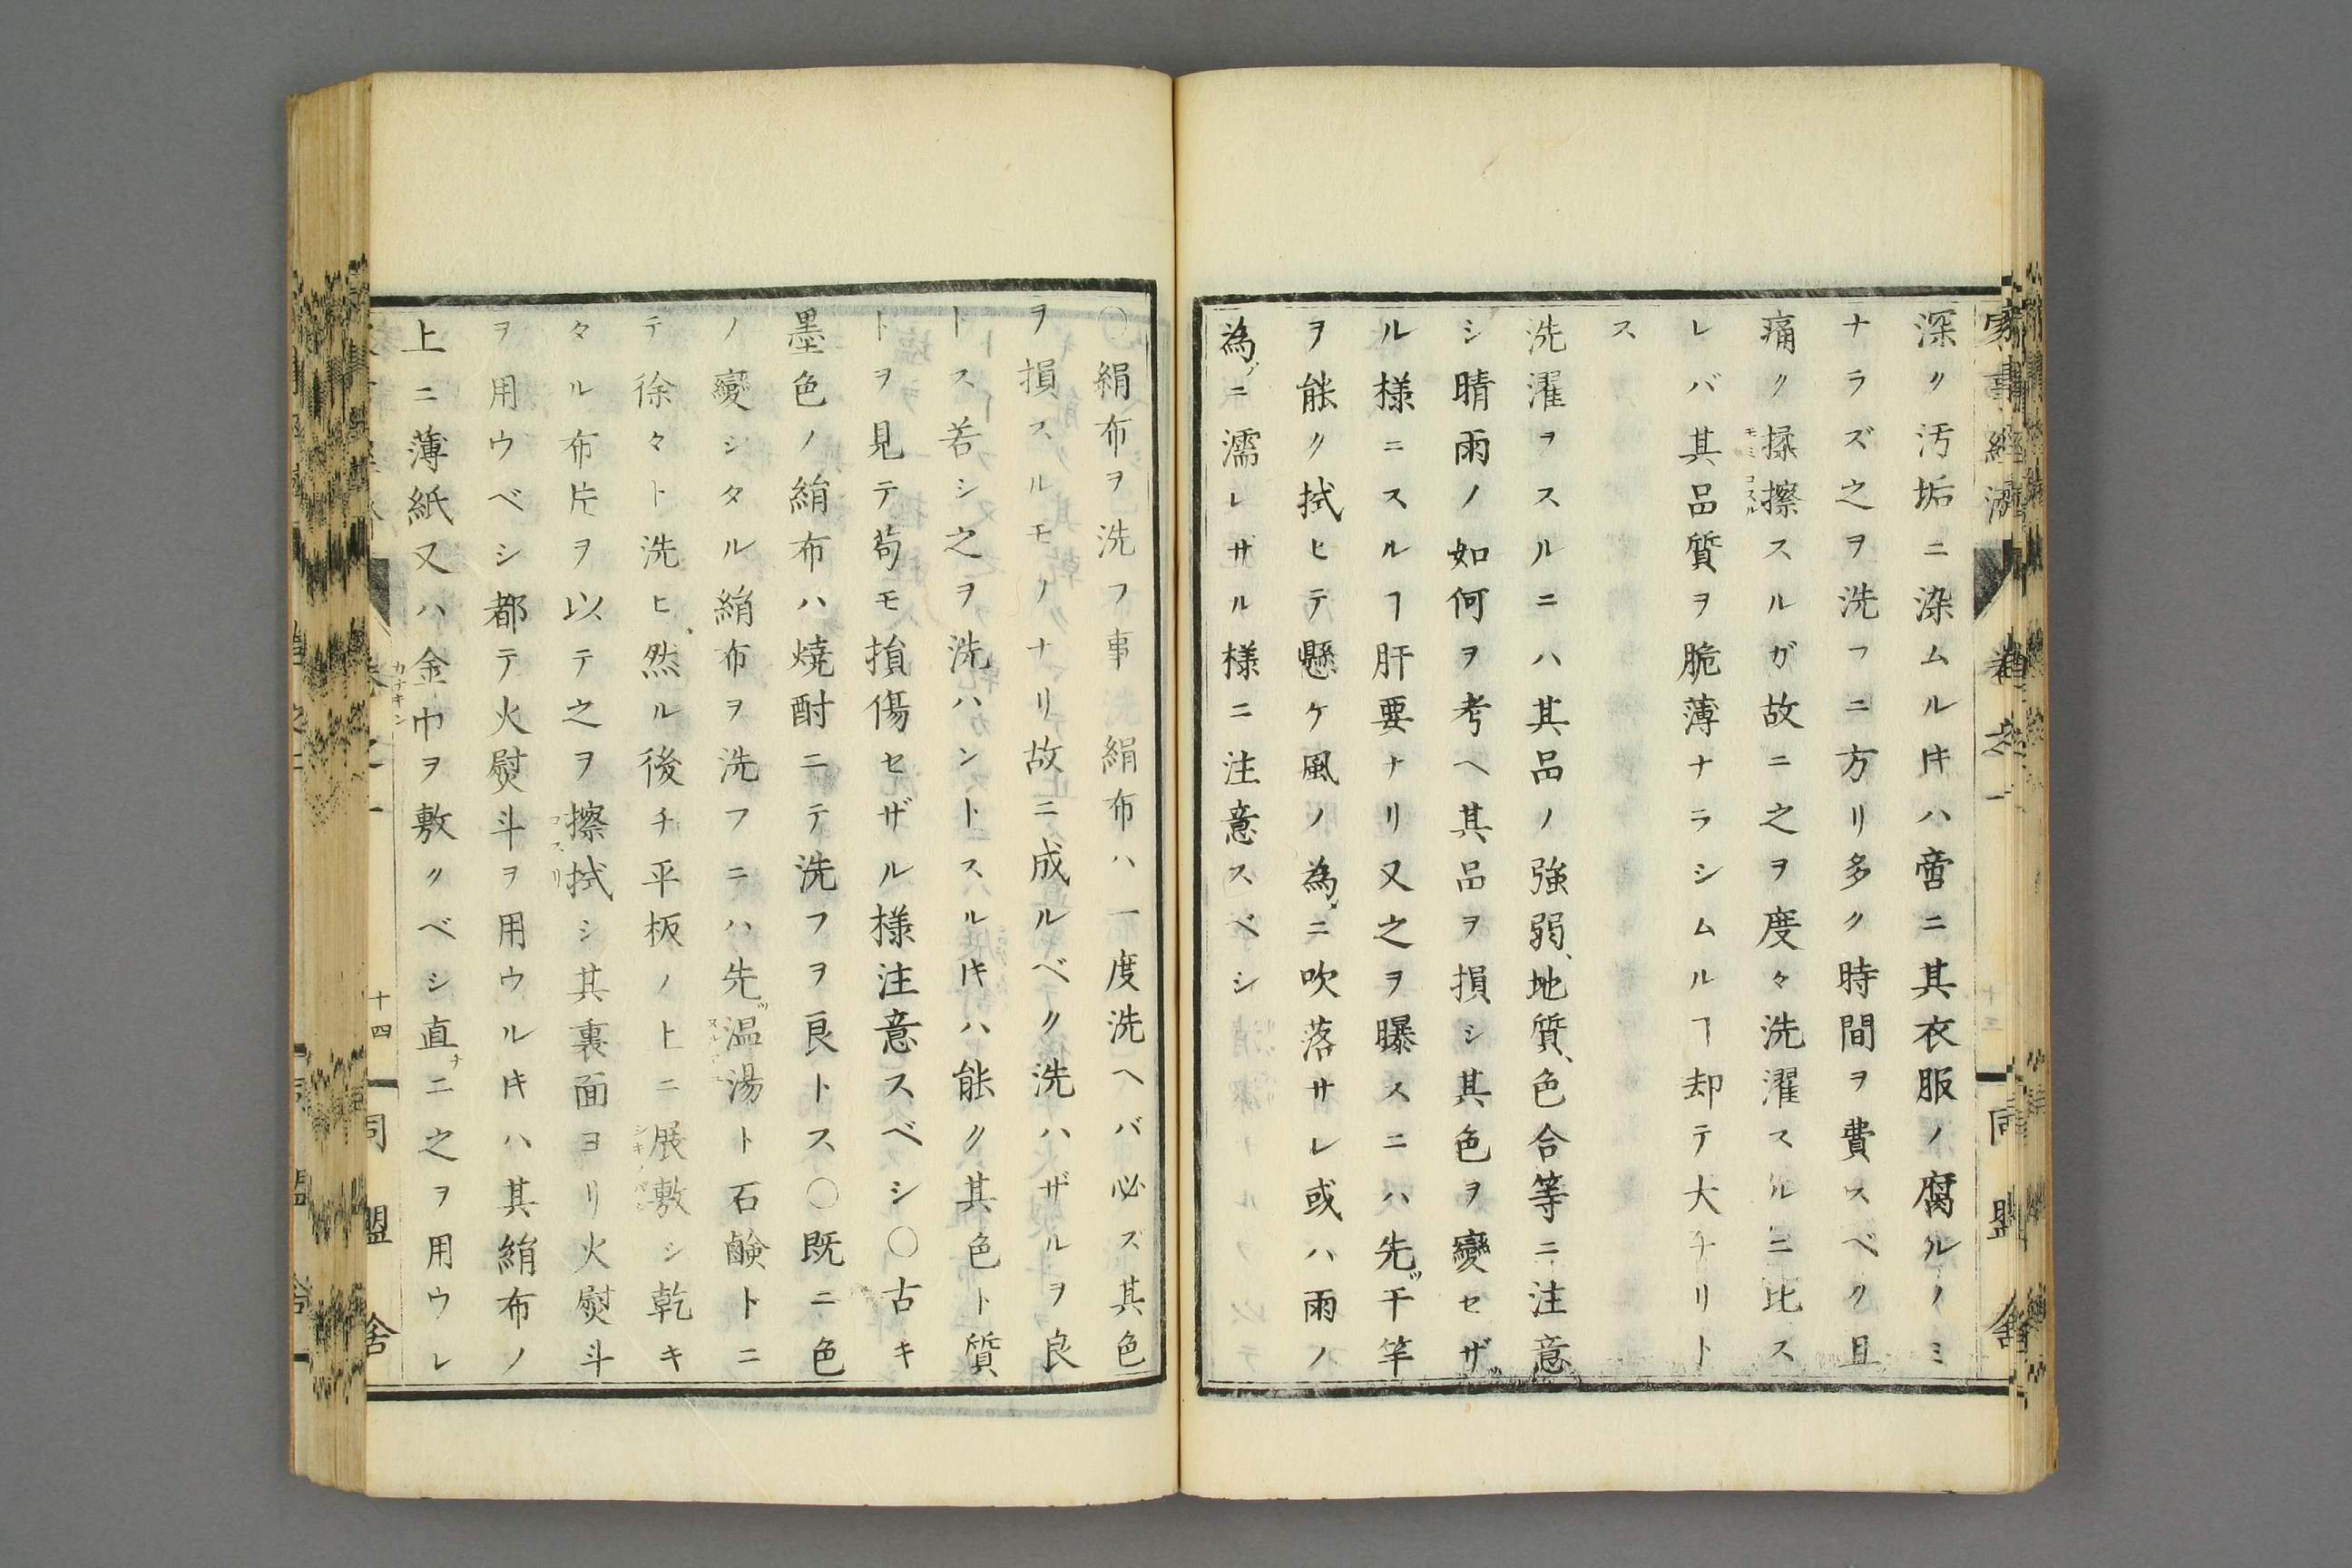 深ク汚垢ニ染ムル𪜈ハ啻ニ其衣服ノ腐ルノミ
ナラズ之ヲ洗フニ方リ多ク時間ヲ費スベク且
痛ク揉擦スルガ故ニ之ヲ度々洗濯スルニ比ス
レバ其品質ヲ脆薄ナラシムルヿ却テ大ナリト
ス
洗濯ヲスルニハ其品ノ強弱、地質、色合等ニ注意
シ晴雨ノ如何ヲ考ヘ其品ヲ損シ其色ヲ變セザ
ル様ニスルヿ肝要ナリ又之ヲ曝スニハ先ヅ干竿
ヲ能ク拭ヒテ懸ケ風ノ為メニ吹落サレ或ハ雨ノ
為メニ濡レザル様ニ注意スベシ
〇絹布ヲ洗フ事 絹布ハ一度洗ヘバ必ズ其色
ヲ損スルモノナリ故ニ成ルベク洗ハザルヲ良
トス若シ之ヲ洗ハントスル𪜈ハ能ク其色ト質
トヲ見テ苟モ損傷セザル様注意スベシ〇古キ
墨色ノ絹布ハ燒酎ニテ洗フヲ良トス〇既ニ色
ノ變シタル絹布ヲ洗フニハ先ヅ温湯ト石鹸トニ
テ徐々ト洗ヒ、然ル後チ平板ノ上ニ展敷シ乾キ
タル布片ヲ以テ之ヲ擦拭シ其裏面ヨリ火熨斗
ヲ用ウベシ都テ火熨斗ヲ用ウル𪜈ハ其絹布ノ
上ニ薄紙又ハ金巾ヲ敷クベシ直チニ之ヲ用ウレ
十四
同盟舎